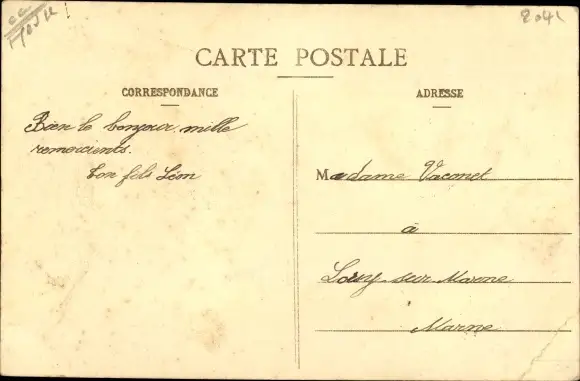 2041
CARTE POSTALE
CORRESPONDANCE
Bien le bonjour mille
remerciements.
Ton fils Léon
ADRESSE
Madame Vaconet
à
sur Marne
Marne